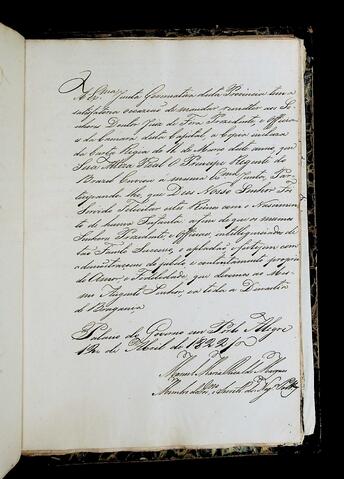 A Exma Junta Governativa desta Provincia tem a
satisfatoria occazião de mandar remetter aos Se-
nhores Doutor Juiz de Fora Prezidente e Officiaes
da Camara desta Capital, a Copia incluza
da Carta Regia de 11 de Março deste anno, que
Sua Alteza Real O Principe Regente do
Brazil Enviou á mesma Exma Junta, Par-
ticipando lhe, que Deos Nosso Senhor Foi
Servido Felicitar este Reino com o Nascimento
de huma Infanta afim de que os mesmos
Senhores Prezidente, e Officiaes, intelligenciados de
tão Fausto Successo, o aplaudão, e festejem com
demonstraçoens de jubilo e contentamento proprias
do Amor, e Fidelidade, que devemos ao Mes-
mo Augusto Senhor, e a toda a Dinastia
de Bragança
Palacio do Governo em Porto Alegre
12 de Abril de 1822
Manoel Maria
Membro da